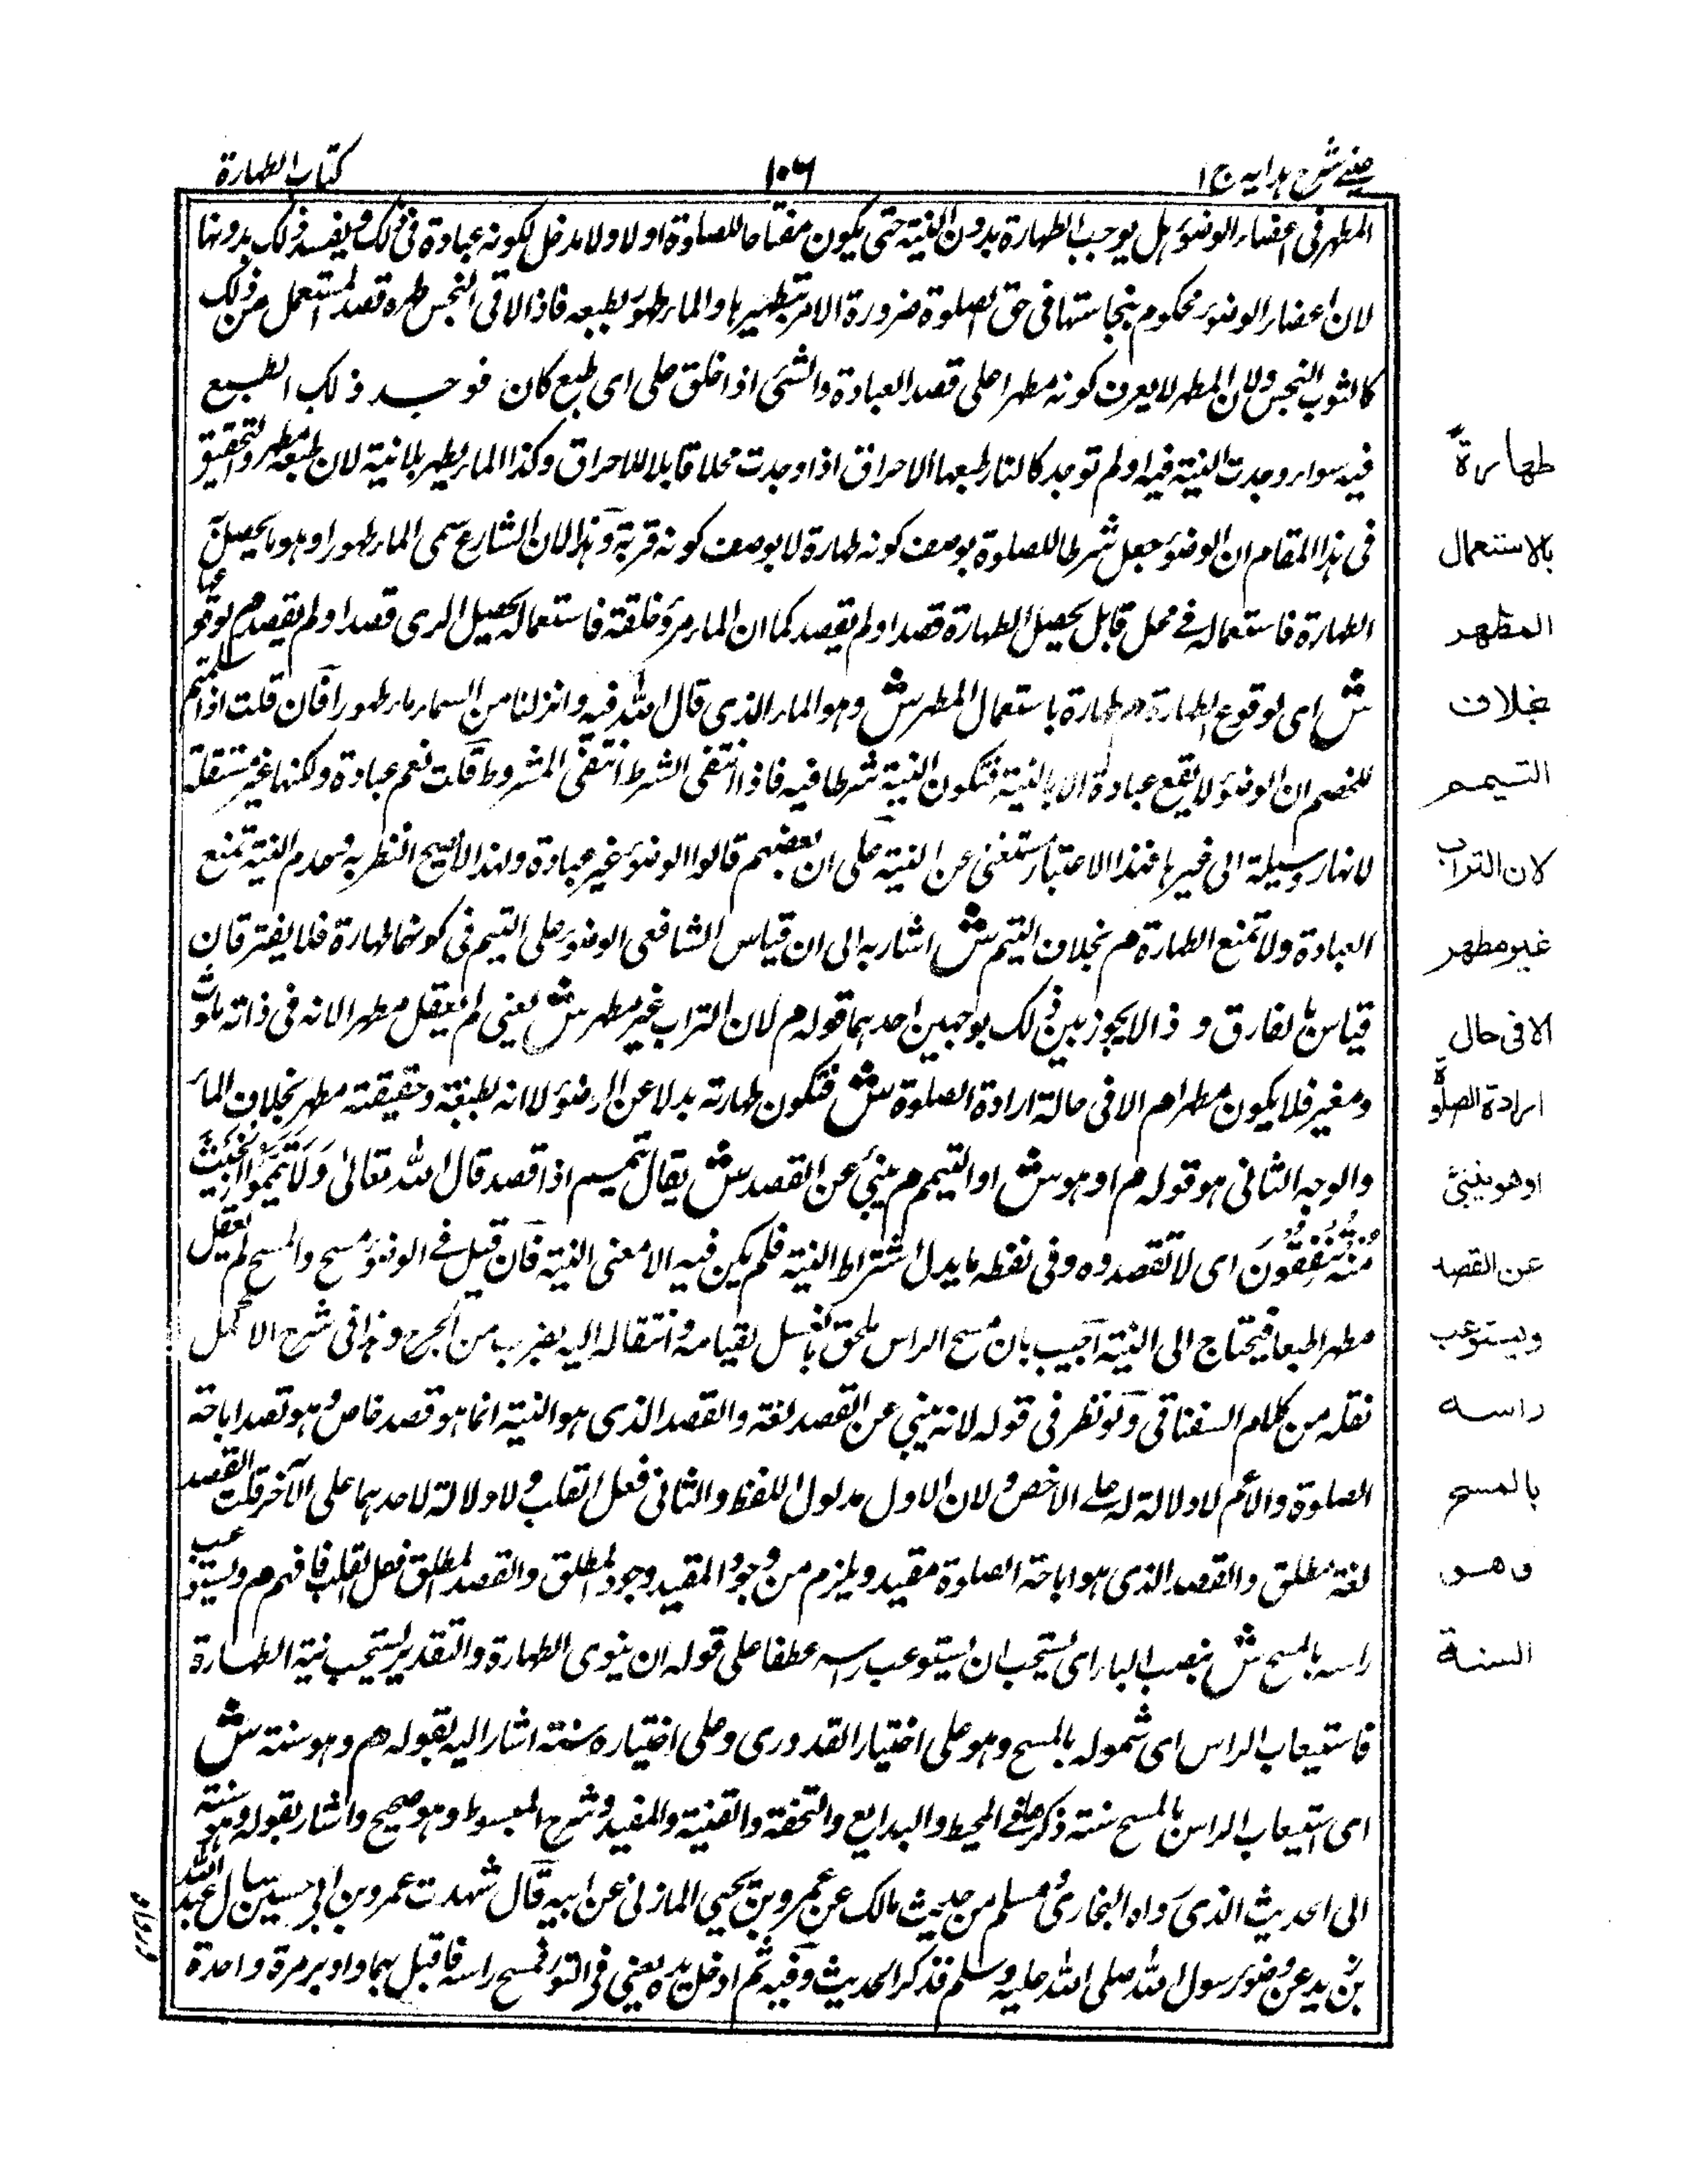 عيني شرح هدايه ج ١
١٠٦
كتاب الطهارة
المطهر في اعضاء الوضوء هل يوجب الطهارة بدون النية حتى يكون مفتاحا للصلوة اولا ولا مدخل لكونه عبادة في ذلك ويفسد ذلك بدونها
لان اعضاء الوضوء محكوم بنجاستها في حق الصلوة ضرورة الامر بتطهيرها والماء طهور بطبعه فاذا لاقى النجس طهره قصد المستعمل من ذلك
كالثوب النجس ولان المطهر لا يعرف كونه مطهرا على قصد العبادة والشئ اذا خلق على اى طبع كان فوجد ذلك الطبع
فيه سواء وجدت النية فيه او لم توجد كالنار طبعها الاحراق اذا وجدت محلا قابلا للاحراق وكذا الماء يطهر بلا نية لان طبعه مطهر والتحقيق
فى هذا المقام ان الوضوء جعل شرطا للصلوة بوصف كونه طهارة لا بوصف كونه قربة وهذا لان الشارع سمى الماء طهورا وهو ما يحصل به
الطهارة فاستعماله في محل قابل يحصل الطهارة قصد او لم يقصد كما ان الماء مرو خلقة فاستعماله يحصل الرى قصد او لم يقصد م لوقوعها
ش اى لوقوع الطهارة م طهارة باستعمال المطهر ش وهو الماء الذى قال الله فيه وانزلنا من السماء ماء طهورا فان قلت اذا سلمتم
للخصم ان الوضوء لا يقع عبادة الا بالنية فتكون النية شرطا فيه فاذا انتفى الشرط انتفى المشروط قلت نعم عبادة ولكنها غير مستقلة
لانها وسيلة الى غيرها فهذا الاعتبار ستغنى عن النية على ان بعضهم قالوا الوضوء غير عبادة ولهذا لا يصح النظر به وعدم النية تمنع
العبادة ولا تمنع الطهارة م بخلاف التيمم ش اشار به الى ان قياس الشافعى الوضوء على التيمم فى كونهما طهارة فلا يفترقان
قياس بالفارق و ذا لا يجوز بين ذلك بوجهين احدهما قوله م لان التراب غير مطهر ش يعنى لم يعقل مطهرا لانه فى ذاته ملوث
ومغبر فلا يكون مطهرا م الا فى حالة ارادة الصلوة ش فتكون طهارته بدلا عن الوضوء لا انه لطبعه وحقيقته مطهر بخلاف الماء
والوجه الثانى هو قوله م او هو ش او التيمم م ينبئ عن القصد ش يقال تيمم اذا قصد قال الله تعالى وَلَا تَيَمَّمُوا الْخَبِيثَ
مِنْهُ تُنْفِقُونَ اى لا تقصدوه وفى لفظه ما يدل اشتراط النية فلم يكن فيه الا معنى النية فان قيل في الوضوء مسح والمسح لم يعقل
مطهرا طبعا فيحتاج الى النية اجيب بان مسح الراس ملحق بالغسل لقيامه وانتقاله اليه بضرب من الحرج وهذا فى شرح الاكمل
نقله من كلام السغناقى ولو نظر فى قوله لانه ينبي عن القصد لغة والقصد الذى هو النية انما هو قصد خاص وهو قصد اباحة
الصلوة والاعم لا دلالة له على الاخص ولان الاول مدلول اللفظ والثانى فعل القلب ولا دلالة لاحدهما على الآخر قلت القصد
لغة مطلق والقصد الذى هو اباحة الصلوة مقيد ويلزم من وجود المقيد وجود المطلق والقصد المطلق فعل القلب فافهم م ويستوعب
راسه بالمسح ش بنصب الباء اى يستحب ان يستوعب راسه عطفا على قوله ان ينوى الطهارة والتقدير يستحب نية الطهارة
فاستيعاب الراس اى شموله بالمسح وهو على اختيار القدورى وعلى اختياره سنته اشار اليه بقوله م وهو سنة ش
اى استيعاب الراس بالمسح سنة ذكره في المحيط والبدايع والتحفة والقنية والمفيد وشرح المبسوط وهو صحيح واشار بقوله وهو سنة
الى الحديث الذى رواه البخارى ومسلم من حديث مالك عن عمرو بن يحيي المازنى عن ابيه قال شهدت عمرو بن ابي حسين سال عبد الله
بن زيد عن وضوء رسول الله صلى الله عليه وسلم فذكر الحديث وفيه ثم ادخل يده يعنى فى التور فمسح راسه فاقبل بهما وادبر مرة واحدة
طهارة
بالاستعمال
المطهر
بخلاف
التيمم
لان التراب
غير مطهر
الا فى حال
ارادة الصلوة
او هو ينبئ
عن القصد
ويستوعب
راسه
بالمسح
وهو
السنة